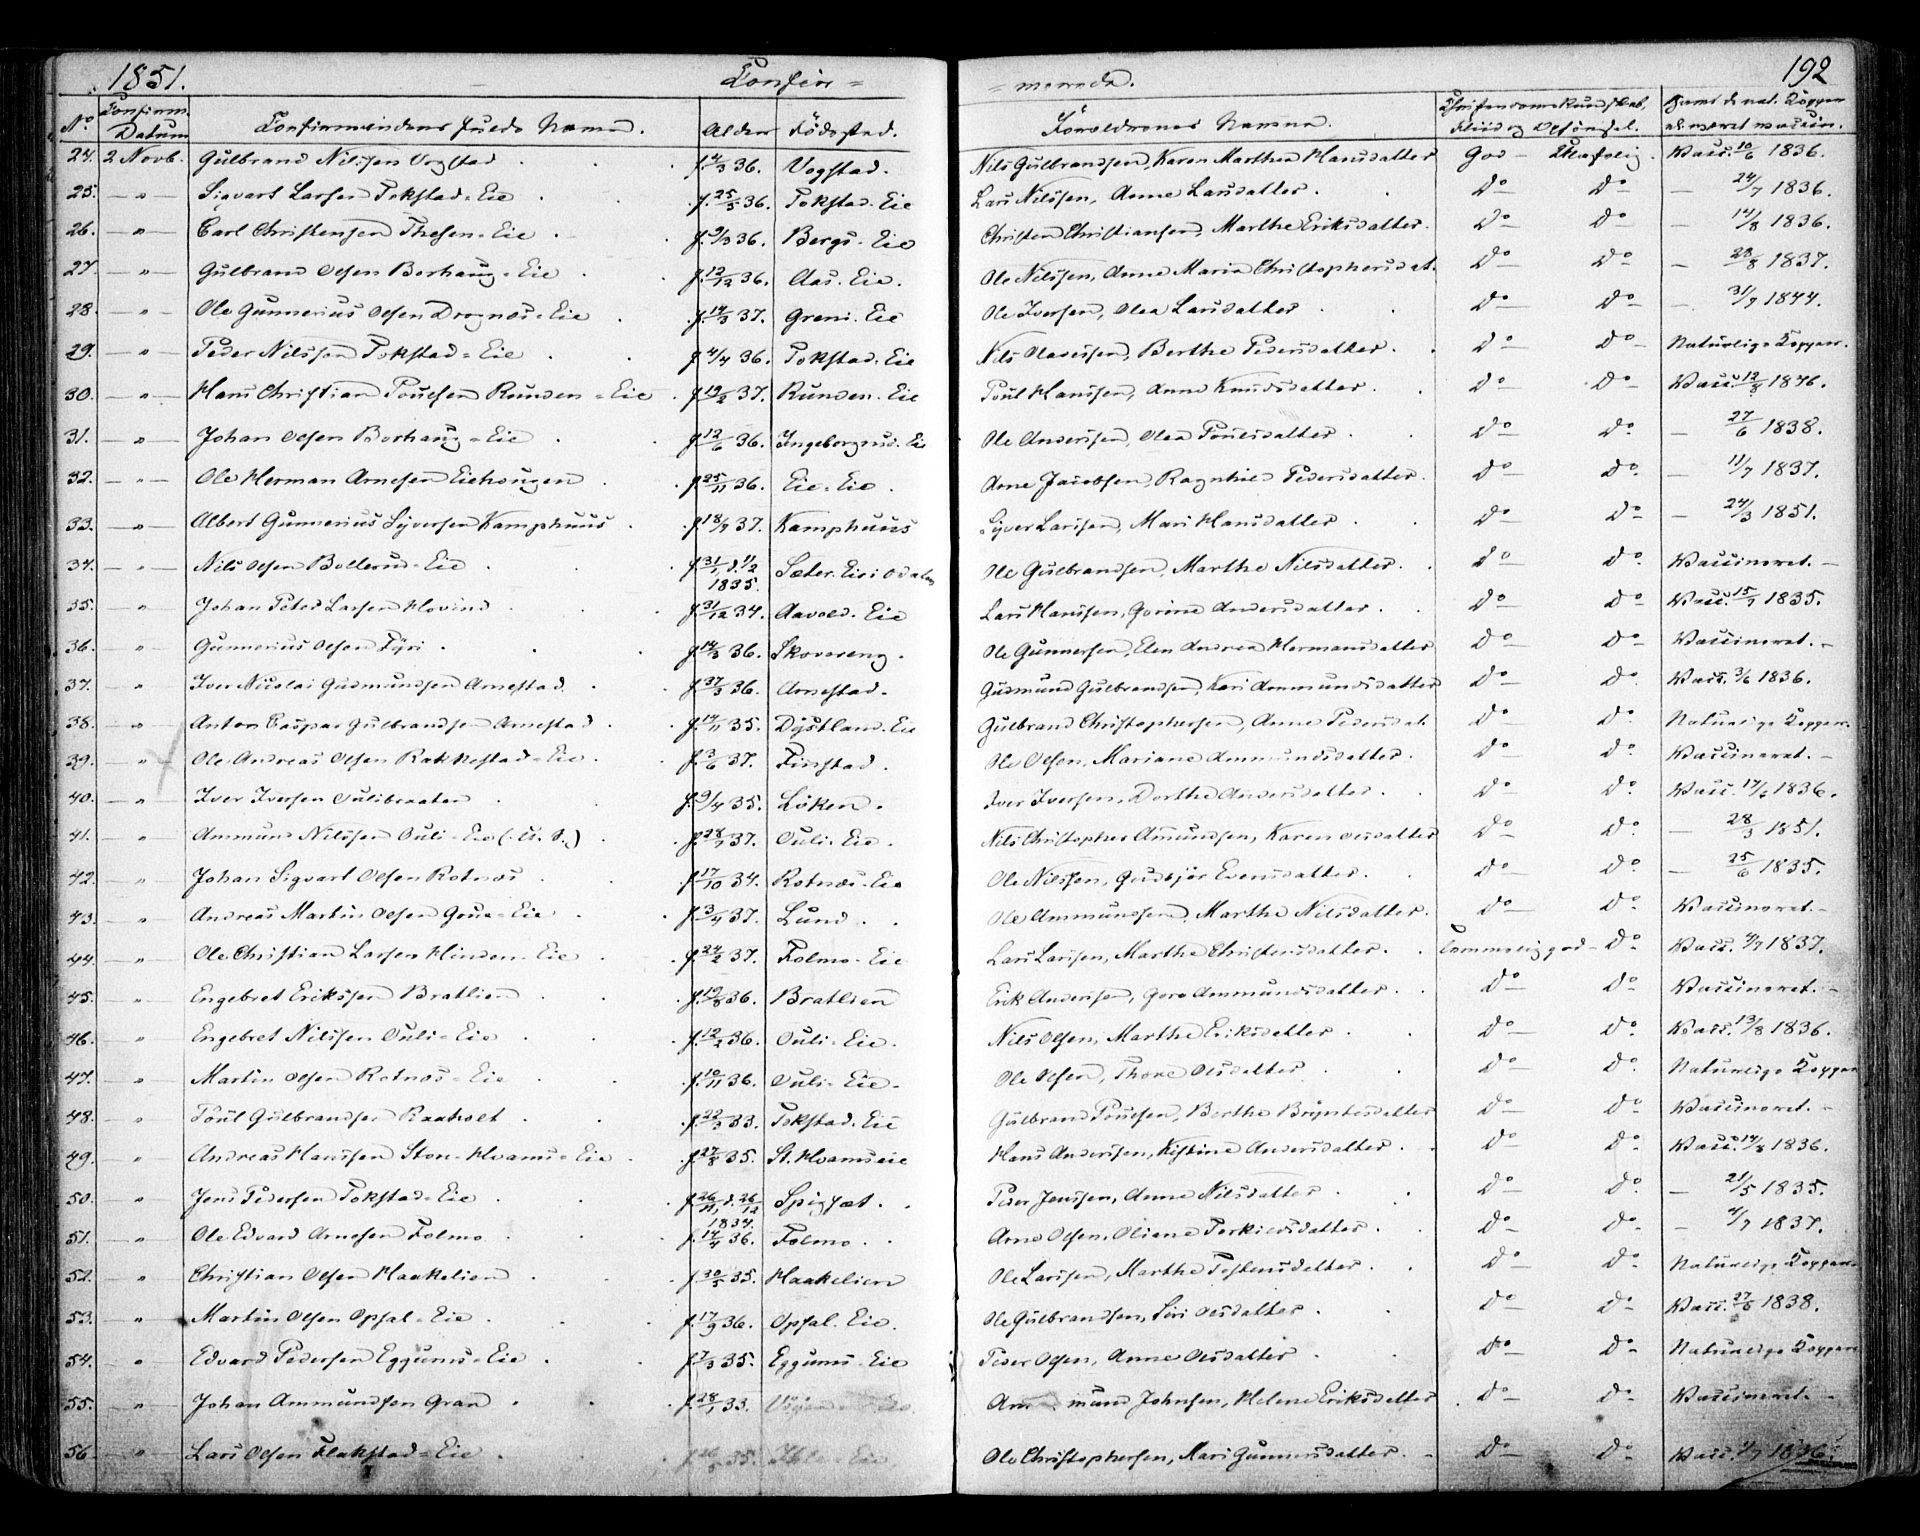 1851. Confir= =merede. 192
No Confirm. Datum Confirmandens fulde Navne. Alder Födested. Foreldrenes Navne. Christendoms Kundskab, Fliid og Opförsel. Havt de nat. Kopper el. været vaccin.
24. 2 Novb. Gulbrand Nilssen Vogstad f. 4/3 36. Vogstad. Nils Gulbrandsen, Karen Marthea Hansdatter God - Skikkelig. Vacc. 10/6 1836.
25. — „ — Sigvart Larsen Tokstad=Eie f. 25/5 36. Tokstad. Eie Lars Nilssen, Anne Larsdatter. Do Do — 24/7 1836.
26. — „ — Carl Christensen Thesen=Eie f. 9/3 36. Bergs. Eie Christen Christiansen, Marthe Eriksdatter. Do Do — 14/8 1836.
27 — „ — Gulbrand Olsen Borhaug=Eie f. 12/12 36. Aas. Eie. Ole Nilssen, Anne Maria Christophersdat. Do Do — 28/8 1837.
28. — „ — Ole Gunnerius Olsen Drognes=Eie f. 14/3 37. Greni. Eie Ole Iversen, Olea Larsdatter Do Do — 31/7 1844.
29. — „ — Peder Nilssen Tokstad=Eie f. 4/4 36. Tokstad. Eie Nils Olavessen, Berthe Pedersdatter. Do Do Naturlige Kopper.
30. — „ — Hans Christian Poulsen Runden=Eie f. 12/2 37. Runden. Eie Poul Hanssen, Anne Knudsdatter. Do Do Vacc. 12/8 1846.
31. — „ — Johan Olsen Borhaug=Eie f. 12/6 36. Ingeborgrud. Eie Ole Anderssen, Olea Poulsdatter. Do Do — 27/6 1838.
32. — „ — Ole Herman Arnesen Eiehougen f. 25/11 36. Eie=Eie. Arne Jacobsen, Ragnhild Pedersdatter. Do Do — 11/7 1837.
33. — „ — Albert Gunnerius Syversen Kamphuus f. 18/7 37. Kamphuus Syver Larssen, Mari Hansdatter Do Do — 24/3 1851.
34. — „ — Nils Olsen Bollerud=Eie f. 31/1 d. 11/2 1835. Sæter. Eie i Odalen Ole Gulbrandsen, Marthe Nilsdatter. Do Do Vaccineret.
35. — „ Johan Peter Larsen Hovind f. 31/12 34. Aavold. Eie Lars Hanssen, Gorine Andersdatter Do Do Vacc. 15/7 1835.
36. „ Gunnerius Olsen Fyri. f. 14/3 36. Skovereng. Ole Gunnersen, Elen Andrea Hermansdatter Do Do Vaccineret.
37. — „ — Iver Nicolai Gudmundsen Arnestad. f. 37/3 36. Arnestad. Gudmund Gulbrandsen, Kari Ammundsdatter Do Do Vacc. 3/6 1836.
38. — „ Anton Caspar Gulbrandsen Arnestad. f. 14/11 35. Dystland. Eie Gulbrand Christophersen, Anne Pedersdat. Do Do Naturlige Kopper.
39. — „ Ole Andreas Olsen Rakkestad=Eie f. 3/6 37. Finstad. Ole Olsen, Mariane Ammundsdatter. Do Do Vaccineret.
40. — „ Iver Iversen Oulibraaten f. 9/4 35. Löken. Iver Iversen, Dorthe Andersdatter. Do Do Vacc. 17/6 1836.
41. — „ Ammund Nilssen Ouli=Eie f. 28/7 37. Ouli. Eie. Nils Christopher Amundsen, Karen Olsdatter Do Do — 28/3 1851.
42. — „ Johan Sigvart Olsen Rotnes f. 17/10 34. Rotnes. Eie Ole Nilssen, Gudbjör Evensdatter. Do Do — 25/6 1835.
43. — „ Andreas Martin Olsen Goue=Eie f. 3/4 37. Lund. Ole Ammundsen, Marthe Nilsdatter. Do Do Vaccineret.
44. „ Ole Christian Larsen Hinden=Eie f. 24/2 37. Folmo. Eie Lars Larssen, Marthe Christensdatter Temmelig god Do Vacc. 4/7 1837.
45. „ Engebret Erikssen Bratlien f. 19/8 36. Bratlien Erik Anderssen, Goro Ammundsdatter Do Do Vaccineret.
46. „ Engebret Nilssen Ouli=Eie f. 12/2 36. Ouli. Eie. Nils Olsen, Marthe Eriksdatter Do Do Vacc. 13/8 1836.
47. „ Martin Olsen Rotnes=Eie f. 10/11 36. Ouli. Eie. Ole Olsen, Thore Olsdatter Do Do Naturlige Kopper
48. „ Poul Gulbrandsen Raaholt f. 22/3 33. Tokstad. Eie Gulbrand Poulsen, Berthe Bryntesdatter Do Do Vaccineret.
49. — „ Andreas Hanssen Store-Hvams=Eie f. 27/8 35. St. Hvamseie Hans Anderssen, Kistine Andersdatter. Do Do Vacc. 14/8 1836.
50. „ Jens Pedersen Tokstad=Eie f. 26/11 d. 26/12 1834. Spigset. Peder Jenssen, Anne Nilsdatter. Do Do — 21/5 1835.
51. „ Ole Edvard Arnesen Folmo f. 14/4 36. Folmo. Arne Olsen, Oliane Terkildsdatter Do Do — 4/7 1837.
52. „ Christian Olsen Haakelien f. 30/5 35. Haakelien Ole Larssen, Marthe Tostensdatter. Do Do Naturlige Kopper
53. „ Martin Olsen Opsal=Eie f. 17/9 36. Opsal. Eie. Ole Gulbrandsen, Siri Olsdatter Do Do Vacc. 27/6 1838.
54. „ Edvard Pedersen Eggums=Eie f. 7/3 35. Eggums. Eie Peder Olsen, Anne Olsdatter Do Do Naturlige Kopper
55. „ Johan Ammundsen Gran f. 28/1 33. Ammund Johnsen, Helene Eriksdatter Do Do Vaccineret.
56. „ Lars Olsen Flakstad=Eie 35. Eie Ole Christophersen, Mari Gunnersdatter. Do Do Vacc. 1836.